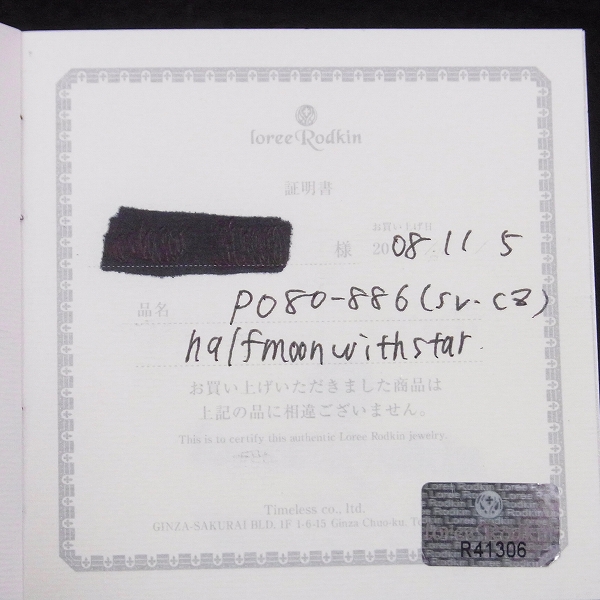 loree Rodkin
証明書
お買い上げ日
様 2008 11 5
品名 P080-886(sv.cz)
halfmoonwithstar.
お買い上げいただきました商品は
上記の品に相違ございません。
This is to certify this authentic Loree Rodkin jewelry.
Timeless co., ltd.
GINZA-SAKURAI BLD. 1F 1-6-15 Ginza Chuo-ku.
R41306